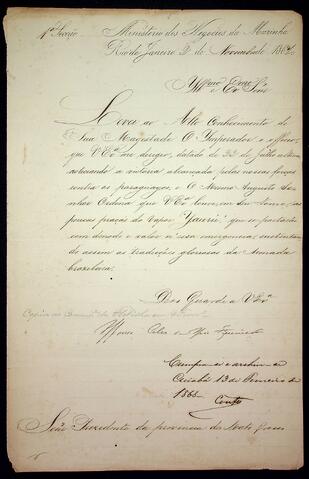 1ª Secção Ministerio dos Negocios da Marinha
Rio de Janeiro 2 de Novembro de 1867
Illmo e Exmo Senr
Levei ao Alto Conhecimento de
Sua Magestade O Imperador o officio,
que V Exª me dirigio, datado de 23 de julho ultimo,
noticiando a victoria alcançada pelas nossas forças
contra os paraguayos; e O Mesmo Augusto Se-
nhor Ordena que V Exª louve, em Seu Nome, as
poucas praças do vapor "Jaurú", que se portarão
com denodo e valor n'essa emergencia, sustentan-
do assim as tradições gloriosas da Armada
brazileira.
Deos Guarde a V Exª
Affonso Celso de Assis Figueiredo
Cumpra-se e archive-se
Cuiabá 13 de Janeiro de
1868
Couto
Senr Presidente da provincia de Mato Grosso